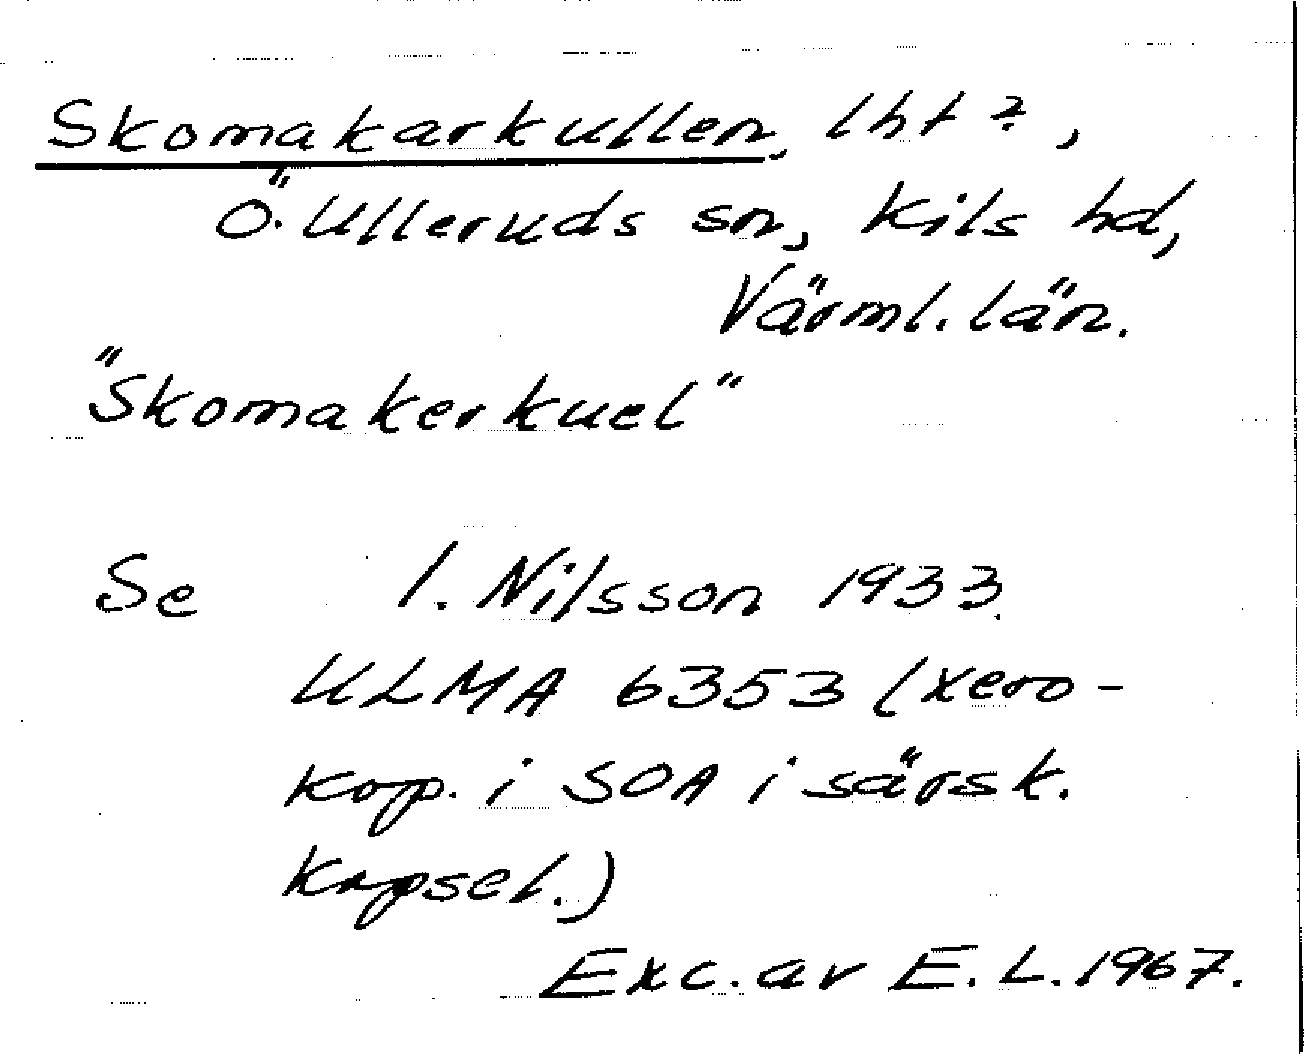 Skomakarkullen, lht?,
Ö. Ulleruds sn, Kils hd,
Värml. län.
"Skomakerkuel"
Se I. Nilsson 1933.
ULMA 6353 (xero-
kop. i SOA i särsk.
kapsel.)
Exc. av E. L. 1967.